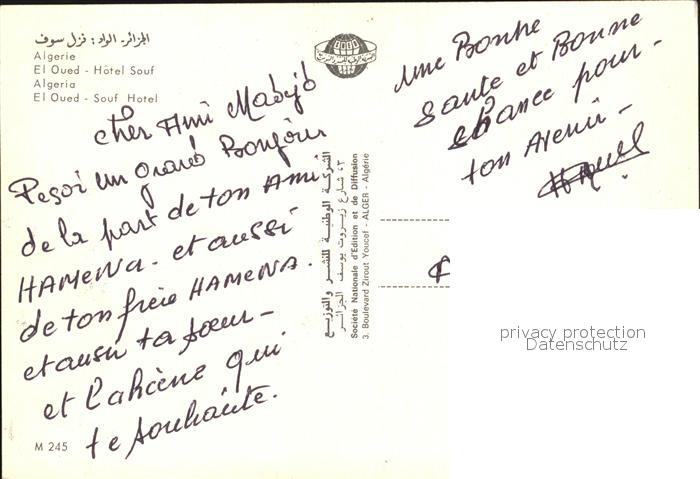 الجزائر- الواد: نزل سوف
Algerie
El Oued - Hôtel Souf
Algeria
El Oued - Souf Hotel
cher Ami Madjid
Reçoi un grand Bonjour
de la part de ton Ami
HAMENA - et aussi
de ton frère HAMENA.
et aussi ta sœur -
et Lahcène qui
te souhaite.
M 245
الشركة الوطنية للنشر والتوزيع
٣، شارع زيروت يوسف الجزائر
Société Nationale d'Edition et de Diffusion
3, Boulevard Zirout Youcef - ALGER - Algérie
une Bonne
Sante et Bonne
chance pour -
ton Avenir -
privacy protection
Datenschutz